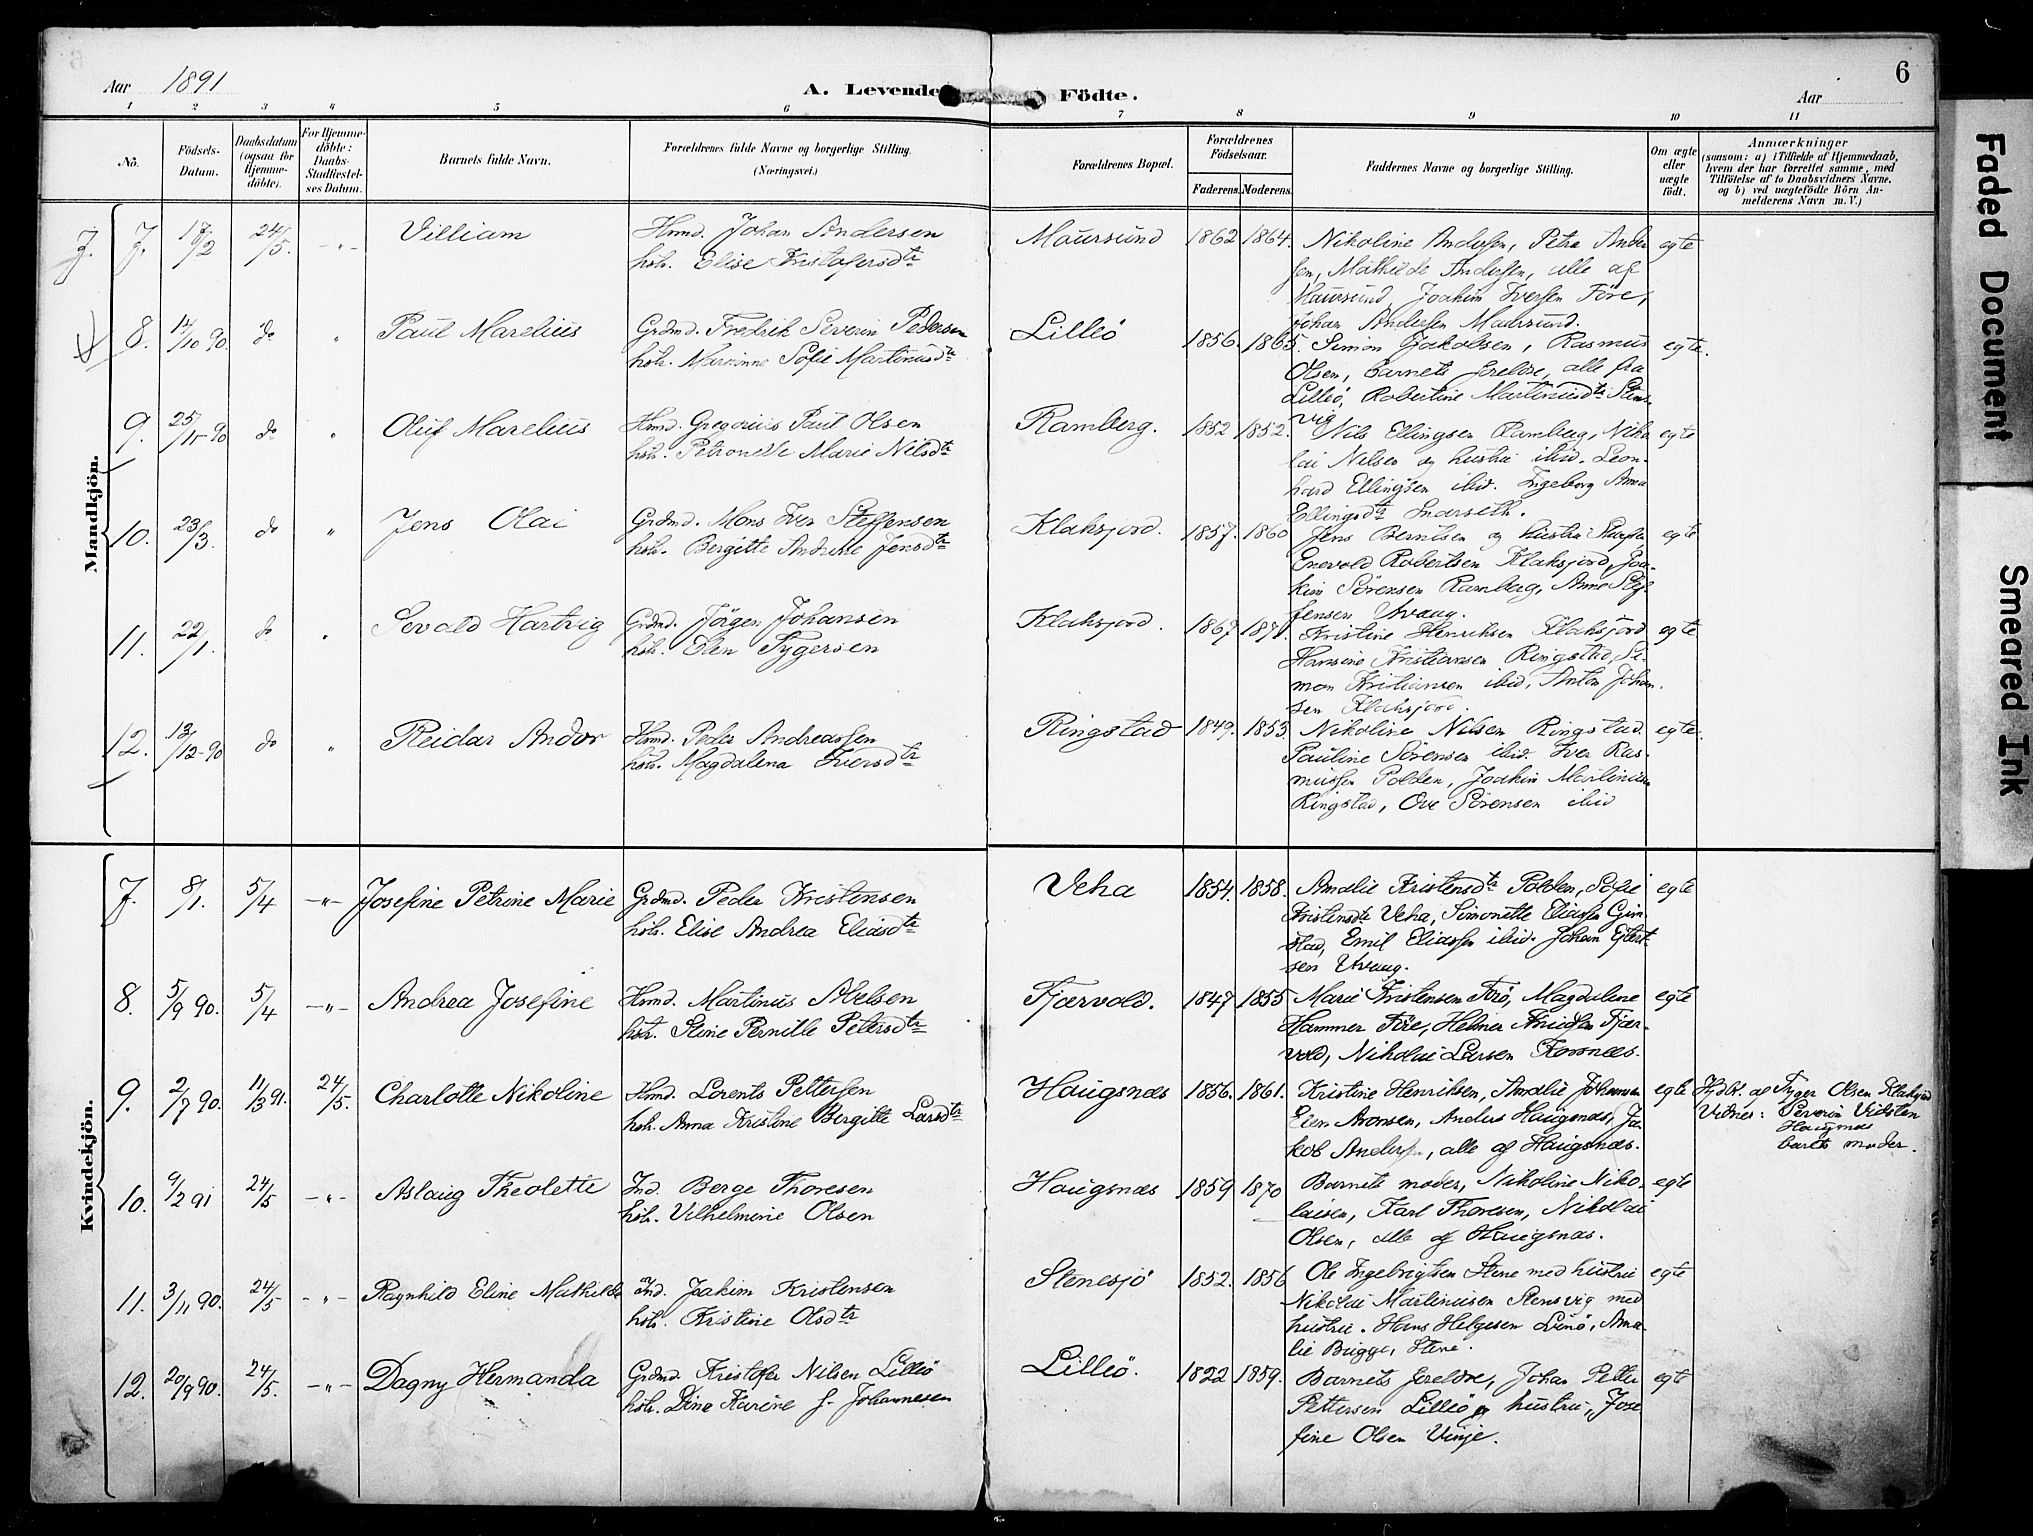 6
Aar 1891
A. Levende Födte.
Aar
1 2 3 4 5 6 7 8 9 10 11
No.
Födsels-
Datum.
Daabsdatum
(ogsaa for
Hjemme-
döbte).
For Hjemme-
döbte:
Daabs-
Stadfæstel-
ses Datum.
Barnets fulde Navn.
Forældrenes fulde Navne og borgerlige Stilling.
(Næringsvei.)
Forældrenes Bopæl.
Forældrenes
Födselsaar.
Faderens. Moderens.
Faddernes Navne og borgerlige Stilling.
Om ægte
eller
uægte
födt.
Anmærkninger
(saasom: a) i Tilfælde af Hjemmedaab,
hvem der har forrettet samme, med
Tilföielse af to Daabsvidners Navne,
og b) ved uægtefödte Börn An-
melderens Navn m. V.)
Mandkjön.
7. 7. 24/5. -"- Villiam
Hmd. Johan Andersen
hstr. Elise Kristofersdtr
Maursund 1862 1864. Nikoline Andersen, Petra Ander egte
sen, Mathilde Andersen, alle af
Maursund, Joakim Iversen Före,
Johan Andersen Maursund.
8. 14/10 90. do " Paul Marelius
Grdmd. Fredrik Severin Pedersen
hstr. Marianne Sofie Martinusdtr
Lilleö 1856. 1865. Simon Jakobsen, Rasmus egte.
Olsen, barnets foreldre, alle fra
Lilleö, Robertine Martinusdtr Stens-
vig
9. 25/11-90 do " Oluf Marelius
Hmd. Gregorius Paul Olsen
hstr. Petronelle Marie Nilsdtr
Ramberg. 1852 1852. Nils Ellingsen Ramberg, Niko egte
lai Nilsen og hustru ibid. Leon-
hard Ellingsen ibid. Ingeborg Anna
Ellingsdtr
10. 23/3. do " Jens Olai
Grdmd. Mons Iver Steffensen
hstr. Bergitte Andrine Jensdtr
Klaksjord. 1857. 1860 Jens Berntsen og hustru egte
Enevold Robertsen Klaksjord, Joa-
kim Sörensen Ramberg, Anne Stef-
fensen Uvaag.
11. 22/1. do " Sevald Hartvig
Grdmd. Jörgen Johansen
hstr. Elen Tygersen
Klaksjord. 1867 1871. Kristine Henriksen Klaksjord egte
Hansine Kristiansen Ringstad, Si-
mon Kristiansen ibid, Anton Johan-
sen Klaksjord.
12. 13/12-90 do " Reidar Andor
Hmd. Peder Andreassen
hstr. Magdalena Iversdtr
Ringstad 1849. 1853. Nikoline Nilsen Ringstad. egte.
Pauline Sörensen ibid. Iver Ras-
mussen Polden, Joakim Martinusen
Ringstad, Ove Sörensen ibid
Kvindekjön.
7. 8/1. 5/4 -"- Josefine Petrine Marie
Grdmd. Peder Kristensen
hstr. Elise Andrea Eliasdtr
Veha 1854. 1858. Amalie Kristensdtr Polden, Sofie egte
Kristensdtr Veha, Simonette Eliassen Grim
stad, Emil Eliassen ibid. Johan
sen Uvaag.
8. 5/9 90. 5/4 -"- Andrea Josefine
Hmd. Martinus Abelsen
hstr. Stine Pernille Petersdtr
Fjærvold. 1847 1855 Marie Kristensen Förö, Magdalene egte
Hammer Före, Helmer Fjær-
vold, Nikolai Larsen
9. 2/7 90. 11/3 91. 24/5. Charlotte Nikoline
Hmd. Lorents Pettersen
hstr. Anna Kristine Bergitte Larsdtr
Haugsnæs 1856. 1861. Kristine Henriksen, Amalie Johansen egte Hjdbt. af Tyger Olsen Klaksjord
Elen Aronsen, Anders Haugsnæs, Ja-
kob Andersen, alle af Haugsnæs.
Vidner: Severin Vidsten
Haugsnæs
barts moder.
10. 9/2 91 24/5 -"- Aslaug Theolette
Ind. Berge Thoresen
hstr. Vilhelmine Olsen
Haugsnæs 1859 1870 Barnets moder, Nikoline Niko- egte
laisen, Karl Thoresen, Nikolai
Olsen, alle af Haugsnæs.
11. 3/11 90. 24/5 -"- Ragnhild Eline Mathilde
Ind. Joakim Kristensen
hstr. Kristine Olsdtr
Stenesjö 1852. 1856 Ole Ingebrigtsen Stene med hustru egte
Nikolai Martinusen Stensvig med
hustru. Hans Helgesen Ama-
lie Brigge, Stene.
12. 20/9 90. 24/5. -"- Dagny Hermanda
Grdmd Kristofer Nilsen Lilleö
hstr. Dina Karine f. Johannesen
Lilleö. 1822 1859. Barnets foreldre, Johan Petter egte
Pettersen Lilleö og hustru, Jose
fine Olsen Vinje.
Faded Document
Smeared Ink